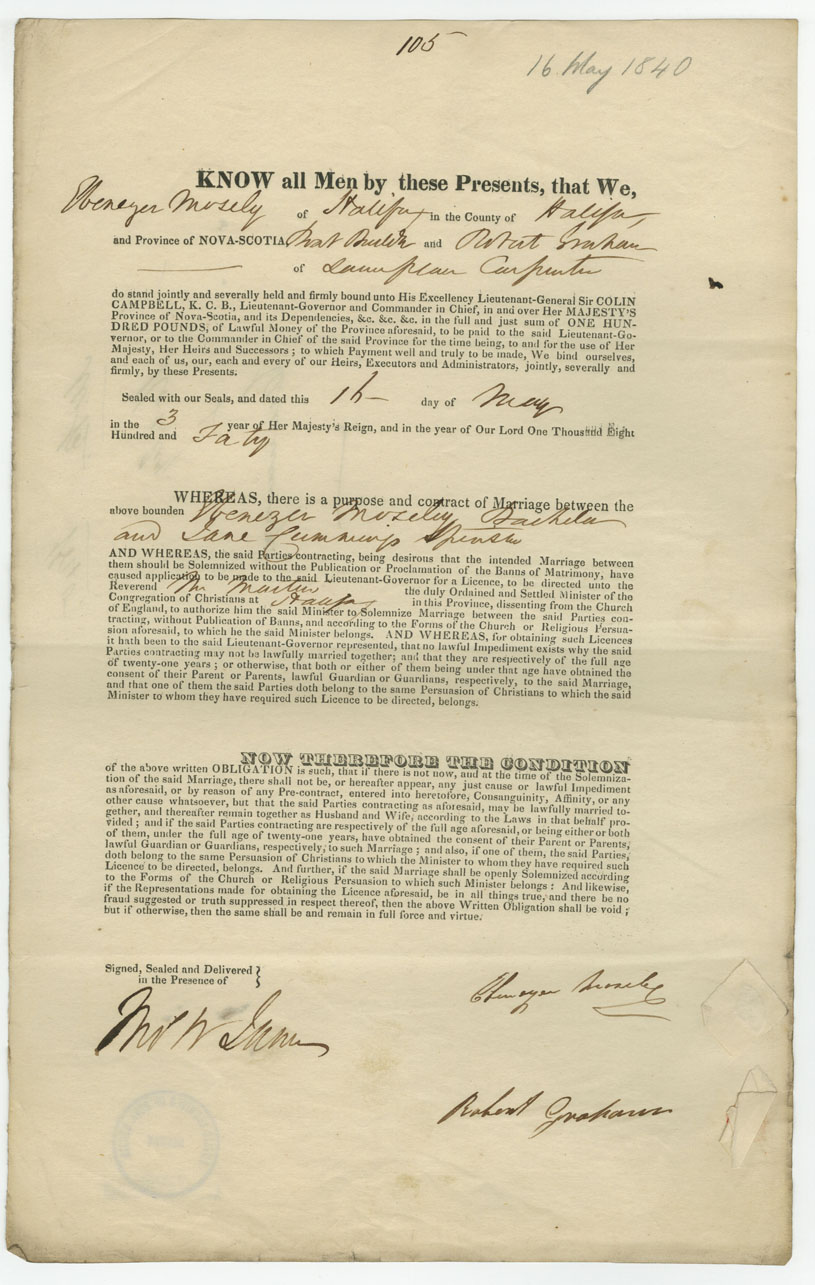 105
16 May 1840
KNOW all Men by these Presents, that We,
Ebenezer Mosely of Halifax in the County of Halifax,
and Province of NOVA-SCOTIA, Boat Builder and Robert Graham
of same place Carpenter
do stand jointly and severally held and firmly bound unto His Excellency Lieutenant-General Sir COLIN
CAMPBELL, K. C. B., Lieutenant-Governor and Commander in Chief, in and over Her MAJESTY'S
Province of Nova-Scotia, and its Dependencies, &c. &c. &c. in the full and just sum of ONE HUN-
DRED POUNDS, of Lawful Money of the Province aforesaid, to be paid to the said Lieutenant-Go-
vernor, or to the Commander in Chief of the said Province for the time being, to and for the use of Her
Majesty, Her Heirs and Successors ; to which Payment well and truly to be made, We bind ourselves,
and each of us, our, each and every of our Heirs, Executors and Administrators, jointly, severally and
firmly, by these Presents.
Sealed with our Seals, and dated this 16 day of May
in the 3 year of Her Majesty's Reign, and in the year of Our Lord One Thousand Eight
Hundred and Forty
WHEREAS, there is a purpose and contract of Marriage between the
above bounden Ebenezer Mosely Bachelor
and Jane Cummings Spinster
AND WHEREAS, the said Parties contracting, being desirous that the intended Marriage between
them should be Solemnized without the Publication or Proclamation of the Banns of Matrimony, have
caused application to be made to the said Lieutenant-Governor for a Licence, to be directed unto the
Reverend Mr Martin the duly Ordained and Settled Minister of the
Congregation of Christians at Halifax in this Province, dissenting from the Church
of England, to authorize him the said Minister to Solemnize Marriage between the said Parties con-
tracting, without Publication of Banns, and according to the Forms of the Church or Religious Persua-
sion aforesaid, to which he the said Minister belongs. AND WHEREAS, for obtaining such Licences
it hath been to the said Lieutenant-Governor represented, that no lawful Impediment exists why the said
Parties contracting may not be lawfully married together; and that they are respectively of the full age
of twenty-one years ; or otherwise, that both or either of them being under that age have obtained the
consent of their Parent or Parents, lawful Guardian or Guardians, respectively, to the said Marriage,
and that one of them the said Parties doth belong to the same Persuasion of Christians to which the said
Minister to whom they have required such Licence to be directed, belongs.
NOW THEREFORE THE CONDITION
of the above written OBLIGATION is such, that if there is not now, and at the time of the Solemniza-
tion of the said Marriage, there shall not be, or hereafter appear, any just cause or lawful Impediment
as aforesaid, or by reason of any Pre-contract, entered into heretofore, Consanguinity, Affinity, or any
other cause whatsoever, but that the said Parties contracting as aforesaid, may be lawfully married to-
gether, and thereafter remain together as Husband and Wife, according to the Laws in that behalf pro-
vided ; and if the said Parties contracting are respectively of the full age aforesaid, or being either or both
of them, under the full age of twenty-one years, have obtained the consent of their Parent or Parents,
lawful Guardian or Guardians, respectively, to such Marriage ; and also, if one of them, the said Parties,
doth belong to the same Persuasion of Christians to which the Minister to whom they have required such
Licence to be directed, belongs. And further, if the said Marriage shall be openly Solemnized according
to the Forms of the Church or Religious Persuasion to which such Minister belongs : And likewise,
if the Representations made for obtaining the Licence aforesaid, be in all things true, and there be no
fraud suggested or truth suppressed in respect thereof, then the above Written Obligation shall be void ;
but if otherwise, then the same shall be and remain in full force and virtue.
Signed, Sealed and Delivered
in the Presence of
Ebenezer Mosely
Thos W James
Robert Graham